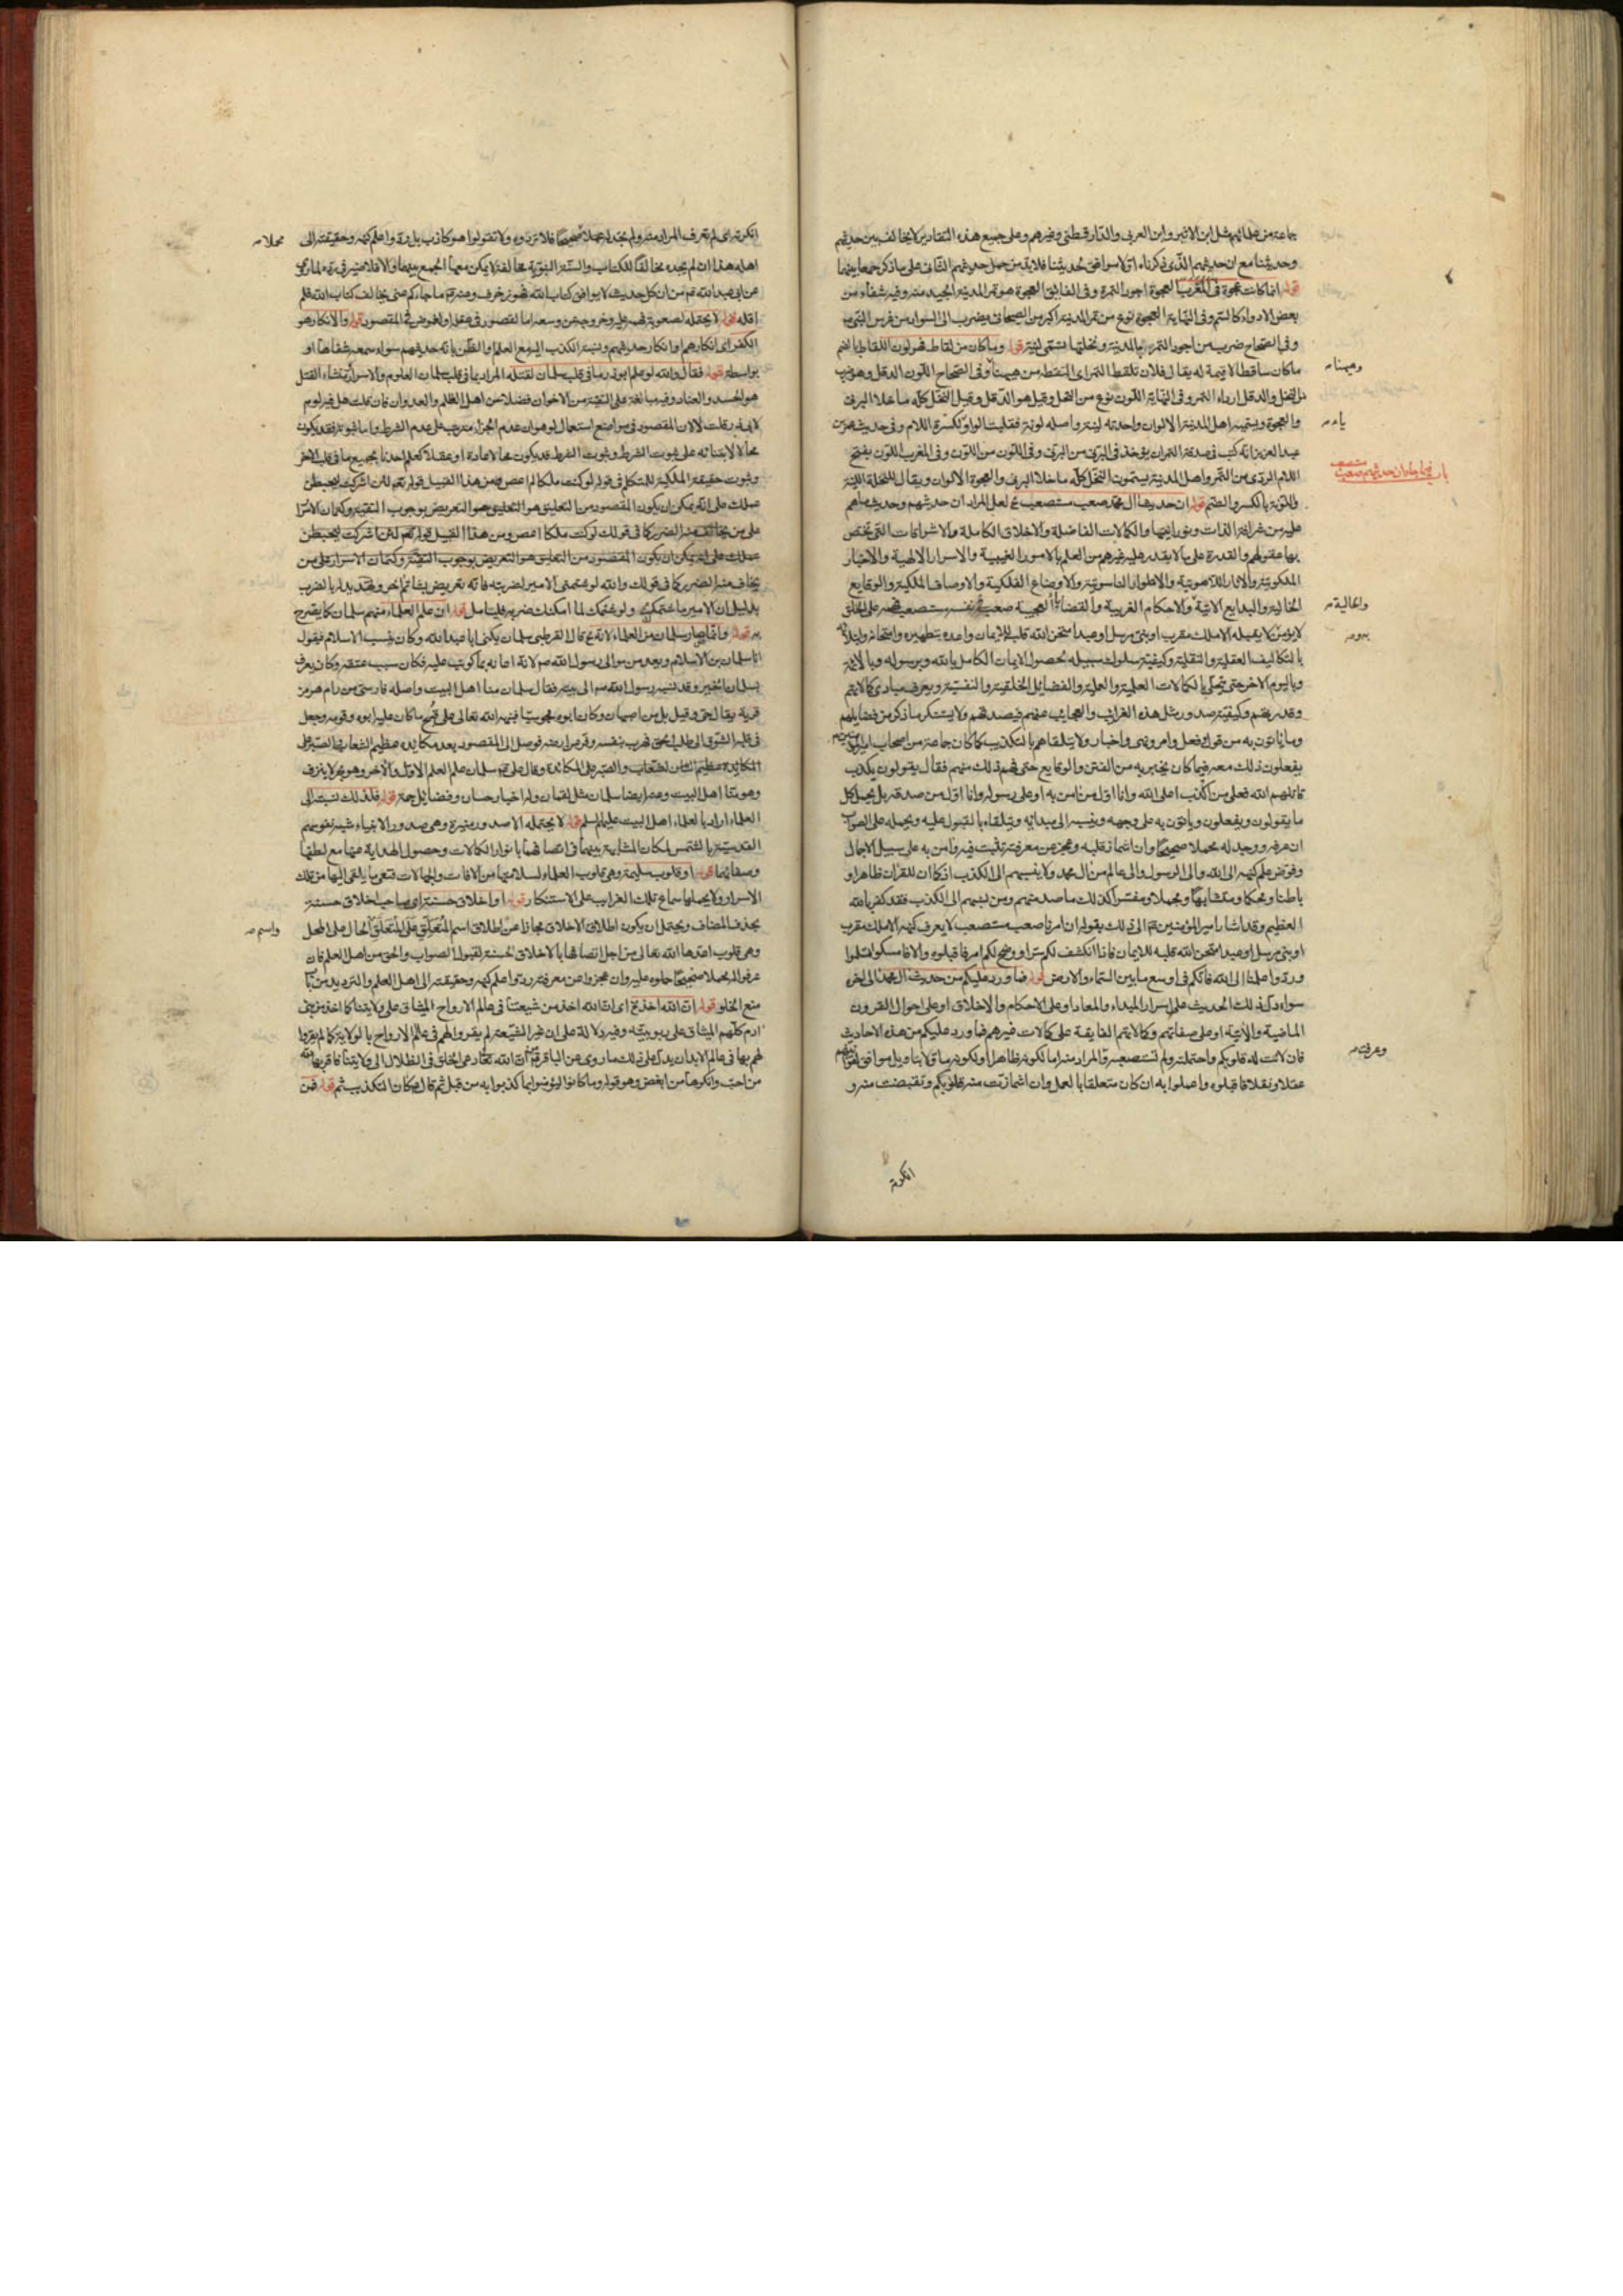 جماعة من علمائهم مثل ابن الاثير وابن العربى والدار قطنى وغيرهم وعلى جميع هذه التقادير لا يخالف بين حديثهم
وحديثنا مع ان حديثهم الذى ذكرناه
قوله انما كانت عجوة فى المغرب العجوة اجود التمرة وفى الفايق العجوة هو تمر المدينة الجيد منه وفيه شفاء من
بعض الادواء كالسم وفى النهاية العجوة نوع من تمر المدينة اكبر من الصيحانى يضرب الى السواد من غرس النبى ص
وفى الصحاح ضرب من اجود التمر بالمدينة ونخلتها تسمى لينة قوله وما كان من لقاط فهو لون اللقاط بالضم
ما كان ساقطا لا قيمة له يقال فلان تلقط التمر اى التقطه من هيهنا وفى الصحاح اللون الدقل وهو ضرب
من النخل والدقل ارداء التمر وفى النهاية اللون نوع من النخل وقيل هو الدقل وقيل النخل كله ما خلا البرنى
والعجوة ويسميه اهل المدينة الالوان واحدته لينة واصله لونة فقلبت الواو لكسرة اللام وفى حديث عمر بن
عبد العزيز انه كتب فى صدقة التمر ان يؤخذ فى البرنى من البرنى وفى اللون من اللون وفى المغرب اللون بفتح
اللام الردى من التمر واهل المدينة يسمون النخل كله ما خلا البرنى والعجوة الالوان ويقال للنخلة اللينة
واللونة بالكسر والضم قوله ان حديث آل محمد صعب مستصعب لعل المراد ان حديثهم وحديث ما هم
عليه من شرافة الذات ونورانيتها والكمالات الفاضلة والاخلاق الكاملة والاشراقات التى تختص
بها عقولهم والقدرة على ما لا يقدر عليه غيرهم من العلم بالامور الغيبية والاسرار الالهية والاخبار
الملكوتية والاثار اللاهوتية والاطوار الناسوتية والاوضاع الفلكية والاوصاف الملكية والوقايع
الخالية والبدايع الاتية والاحكام الغريبة والقضايا العجيبة صعب فى نفسه مستصعب فهمه على الخلق
لا يؤمن لا يقبله الا ملك مقرب او نبى مرسل او عبد امتحن الله قلبه للايمان واعده بتطهيره وامتحانه وابتلائه
بالتكاليف العقلية والنقلية وكيفية سلوك سبيله بحصول الايمان الكامل بالله وبرسوله وبالائمة
وباليوم الاخر حتى يتحلى بالكمالات العلمية والعملية والفضائل الخلقية والنفسية ويعرف مبادى كمالاتهم
وقدرتهم وكيفية صدور مثل هذه الغرايب والعجائب عنهم فيصدقهم ولا يستنكر ما ذكر من فضايلهم
وما ياتون به من قول وفعل وامر ونهى واخبار ولا يتلقاهم بالتكذيب كما كان جماعة من اصحاب امير المؤمنين
يفعلون ذلك معه فيما كان يخبر به من الفتن والوقايع حتى فهم ذلك منهم فقال يقولون يكذب
قاتلهم الله فعلى من اكذب اعلى الله وانا اول من امن به او على رسوله وانا اول من صدقه بل يحمل كل
ما يقولون ويفعلون وياتون به على وجهه وينسبه الى مبدائه ويتلقاه بالقبول عليه ويحمله على الصواب
ان عرفه ووجد له محملا صحيحا وان اشماز قلبه وعجز عن معرفته تثبت فيه وامن به على سبيل الاجمال
وفوض علم كنهه الى الله والى الرسول والى عالم من ال محمد ولا ينسبهم الى الكذب اذ كما ان للقران ظاهرا و
باطنا ومحكما ومتشابها ومجملا ومفسرا كذلك ما صد منهم ومن نسبهم الى الكذب فقد كفر بالله
العظيم وقد اشار امير المؤمنين الى ذلك بقوله ان امرنا صعب مستصعب لا يعرف كنهه الا ملك مقرب
او نبى مرسل او عبد امتحن الله قلبه للايمان فاذا انكشف لكم سر او وضح لكم امر فاقبلوه والا فامسكوا تسلموا
وردوا علمنا الى الله فانكم فى اوسع ما بين السماء والارض قوله فما ورد عليكم من حديث ال محمد الى اخره
سواء دل ذلك الحديث على اسرار المبداء والمعاد او على الاحكام والاخلاق او على احوال القرون
الماضية والاتية او على صفاتهم وكمالاتهم الفايقة على كمالات غيرهم فما ورد عليكم من هذه الاحاديث
فان لانت له قلوبكم واحتملته ولم تستصعبه
عقلا ونقلا فاقبلوه واعملوا به ان كان متعلقا بالعمل وان اشمازت منه قلوبكم وتقبضت منه و
وهيهنا
ياء
باب فيما جاء ان حديثهم صعب مستصعب
والحالية
وعرفت
انكرته
انكرته اى لم تعرف المراد منه ولم تجد له محملا صحيحا فلا تردوه ولا تقولوا هو كاذب بل ردوا علم كنهه وحقيقته الى
اهله هذا ان لم يجده مخالفا للكتاب والسنة النبوية مخالفة لا يمكن معها الجمع بينهما والا فلا ضير فى رده لما روى
عن ابى عبد الله ان كل حديث لا يوافق كتاب الله فهو زخرف وعنه ما جاءكم عنى يخالف كتاب الله فلم
اقله قوله لا يحتمله لصعوبة فهمه عليه وخروجه عن وسعه اما لقصور فى عقله او لغموض فى المقصود قوله والانكار هو
الكفر اى انكارهم وانكار حديثهم ونسبة الكذب اليه مع العلم او الظن بانه حديثهم سواء سمعه شفاها او
بواسطة قوله فقال والله لو علم ابوذر ما فى قلب سلمان لقتله المراد بما فى قلب سلمان العلوم والاسرار ومنشاء القتل
هو الحسد والعناد وفيه مبالغة على التقية من الاخوان فضلا عن اهل الظلم والعدوان فان قلت هل فيه لوم
لابى ذر قلت لا لان المقصود فى مواضع استعمال لو هو ان عدم الجزاء مترتب على عدم الشرط واما ثبوته فقد يكون
محالا لابتنائه على ثبوت الشرط وثبوت الشرط قد يكون محالا عادة او عقلا كعلم احدنا بجميع ما فى قلب الاخر
وثبوت حقيقة الملكية للمتكلم فى قوله لو كنت ملكا لم اعص ومن هذا القبيل قوله تعالى لئن اشركت ليحبطن
عملك على انه يمكن ان يكون المقصود من التعليق هو التعريض بوجوب التقية وكتمان الاسرار
على من يخاف منه الضرر كما فى قولك لو كنت ملكا لم اعص ومن هذا القبيل قوله تعالى لئن اشركت ليحبطن
عملك على انه يمكن ان يكون المقصود من التعليق هو التعريض بوجوب التقية وكتمان الاسرار على من
يخاف منه الضرر كما فى قولك والله لو شتمنى الامير لضربته فانه تعريض بشاتم اخر وتهديد له بالضرب
بدليل ان الامير ما شتمك ولو شتمك لما امكنك ضربه فليتامل قوله ان علم العلماء منهم سلمان كما يصرح
به قوله وانما صار سلمان من العلماء لانه قال القرطبى سلمان يكنى ابا عبد الله وكان ينسب الى الاسلام فيقول
انا سلمان بن الاسلام ويعد من موالى رسول الله ص لانه اعانه بما كوتب عليه فكان سبب عتقه وكان يعرف
بسلمان الخير وقد نسبه رسول الله ص الى بيته فقال سلمان منا اهل البيت واصله فارسى من رام هرمز
قرية يقال لها جى وقيل بل من اصبهان وكان ابوه مجوسيا فنبهه الله تعالى على قبح ما كان عليه ابوه وقومه وجعل
فى قلبه الشوق الى طلب الحق فهرب بنفسه وفر من ارضه فوصل الى المقصود بعد مكابدة عظيم المشاق والصبر على
المكابدة وقال على سلمان علم العلم الاول والاخر وهو بحر لا ينزف
وهو منا اهل البيت وعنه ايضا سلمان مثل لقمان وله اخبار حسان وفضايل جمة قوله فلذلك نسبته الى
العلماء اراد بالعلماء اهل البيت عليهم السلم قوله لا يحتمله الا صدور منيرة وهى صدور الانبياء شبه نفوسهم
القدسية بالشمس لمكان المشابهة بينهما فى اتصافها بانوار الكمالات وحصول الهداية عنها مع لطفها
وصفائها قوله او قلوب سليمة وهى قلوب العلماء لسلامتها من الافات والجهالات فتعى ما يلقى اليها من تلك
الاسرار ولا يحملها سماع تلك الغرايب على الاستنكار قوله او اخلاق حسنة اى صاحب اخلاق حسنة
بحذف المضاف ويحتمل ان يكون اطلاق الاخلاق مجازا من اطلاق اسم المتعلق على المتعلق الحال على المحل
وهى قلوب اعدها الله تعالى من اجل اتصافها بالاخلاق الحسنة لقبول الصواب والحق من اهل العلم فان
عرفوا له محملا صحيحا حملوه عليه وان عجزوا عن معرفته ردوا علم كنهه وحقيقته الى اهل العلم والترديد من باب
منع الخلو قوله ان الله اخذ اى ان الله اخذ من شيعتنا فى عالم الارواح الميثاق على ولايتنا كما اخذ من بنى
ادم كلهم الميثاق على ربوبيته وفيه دلالة على ان غير الشيعة لم يقروا لهم فى عالم الارواح بالولاية كما لم يقروا
لهم بها فى عالم الابدان يدل على ذلك ما روى عن الباقر ان الله تعالى دعى الخلق فى الظلال الى ولايتنا فاقر بها
من احب وانكرها من ابغض وهو قوله وما كانوا ليؤمنوا بما كذبوا به من قبل ثم قال فكان التكذيب ثم قوله فمن
محملا
واسم